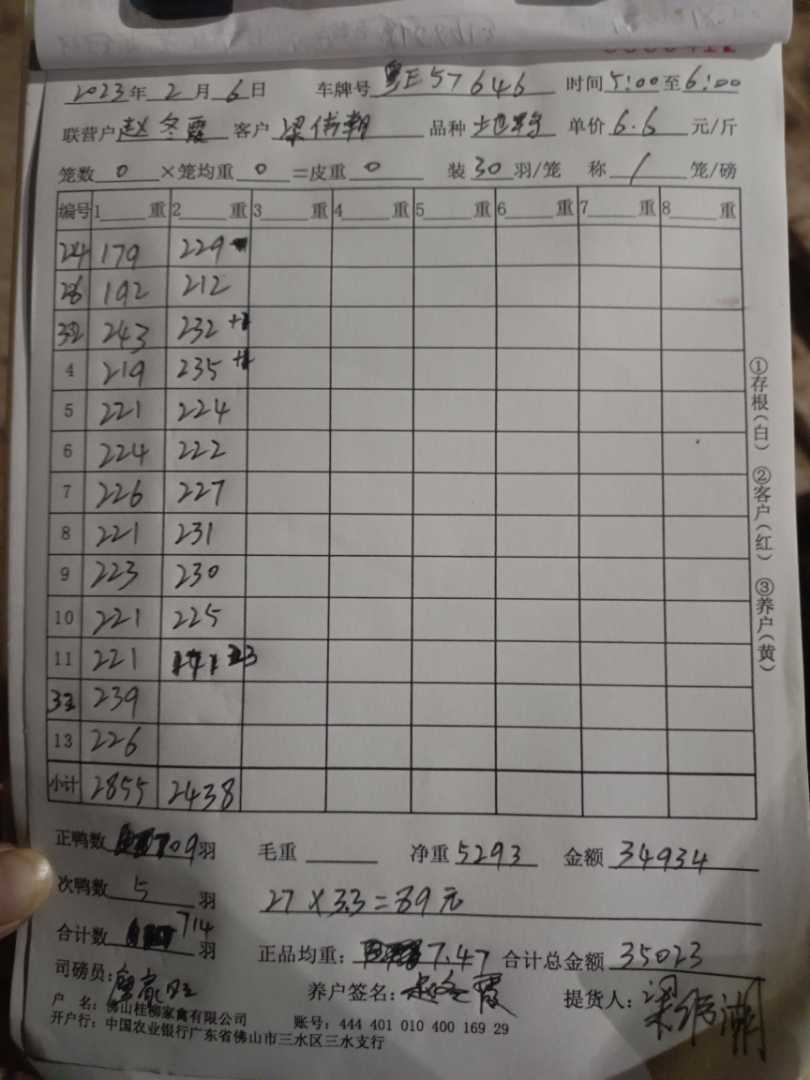 2023年 2月 6日 车牌号 粤E57646 时间 5:00至6:00
联营户 赵冬霞 客户 梁伟潮 品种 单价 6.6 元/斤
笼数 0 ×笼均重 0 =皮重 0 装 30 羽/笼 称 1 笼/磅
编号 1 重 2 重 3 重 4 重 5 重 6 重 7 重 8 重
24 179 229
26 192 212
32 243 232 +1
4 219 235 +1
5 221 224
6 224 222
7 226 227
8 221 231
9 223 230
10 221 225
11 221
239
13 226
小计 2855 2438
正鸭数 709 羽 毛重 净重 5293 金额 34934
次鸭数 5 羽 27×3.3=89元
合计数 714 羽 正品均重: 7.47 合计总金额 35023
司磅员: 养户签名: 赵冬霞 提货人: 梁伟潮
户 名: 佛山桂柳家禽有限公司 账号: 444 401 010 400 169 29
开户行: 中国农业银行广东省佛山市三水区三水支行
①存根(白) ②客户(红) ③养户(黄)